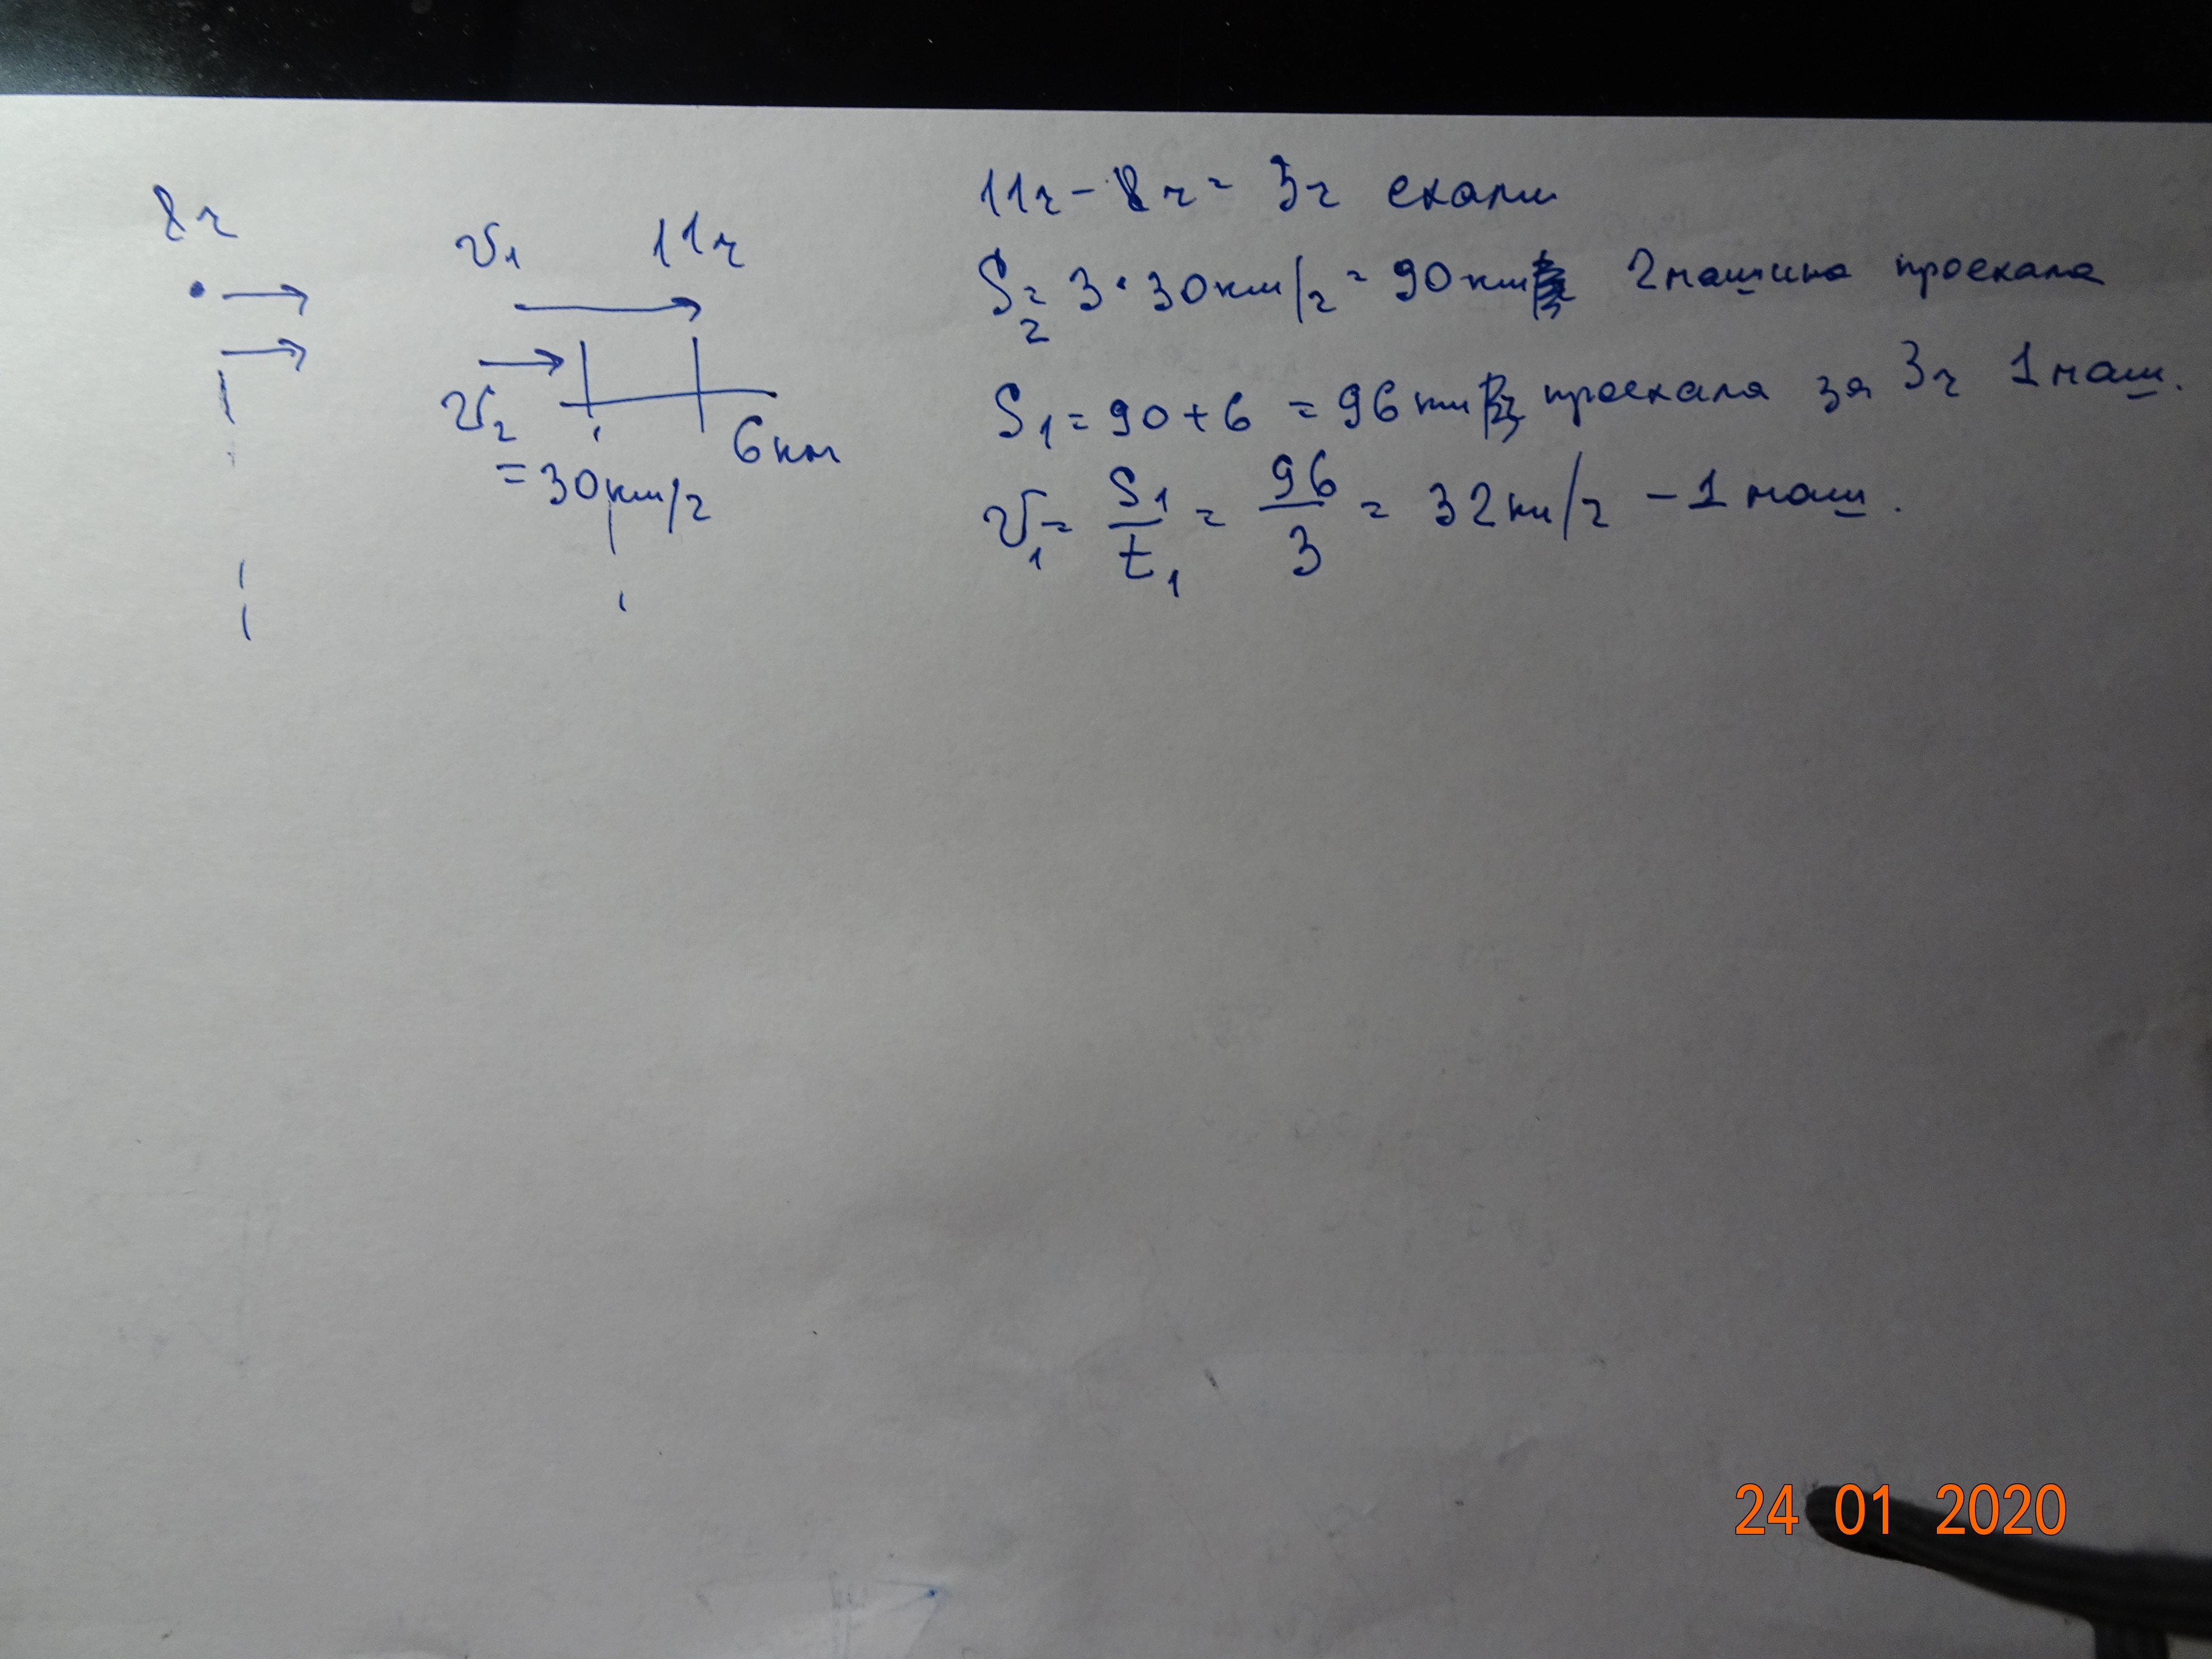 8ч
v₁ 11ч
v₂
= 30км/ч
6км
11ч - 8ч = 3ч ехали
S₂ = 3 · 30км/ч = 90км 2 машина проехала
S₁ = 90 + 6 = 96 км проехала за 3ч 1 маш.
v₁ = S₁/t₁ = 96/3 = 32км/ч - 1 маш.
24 01 2020